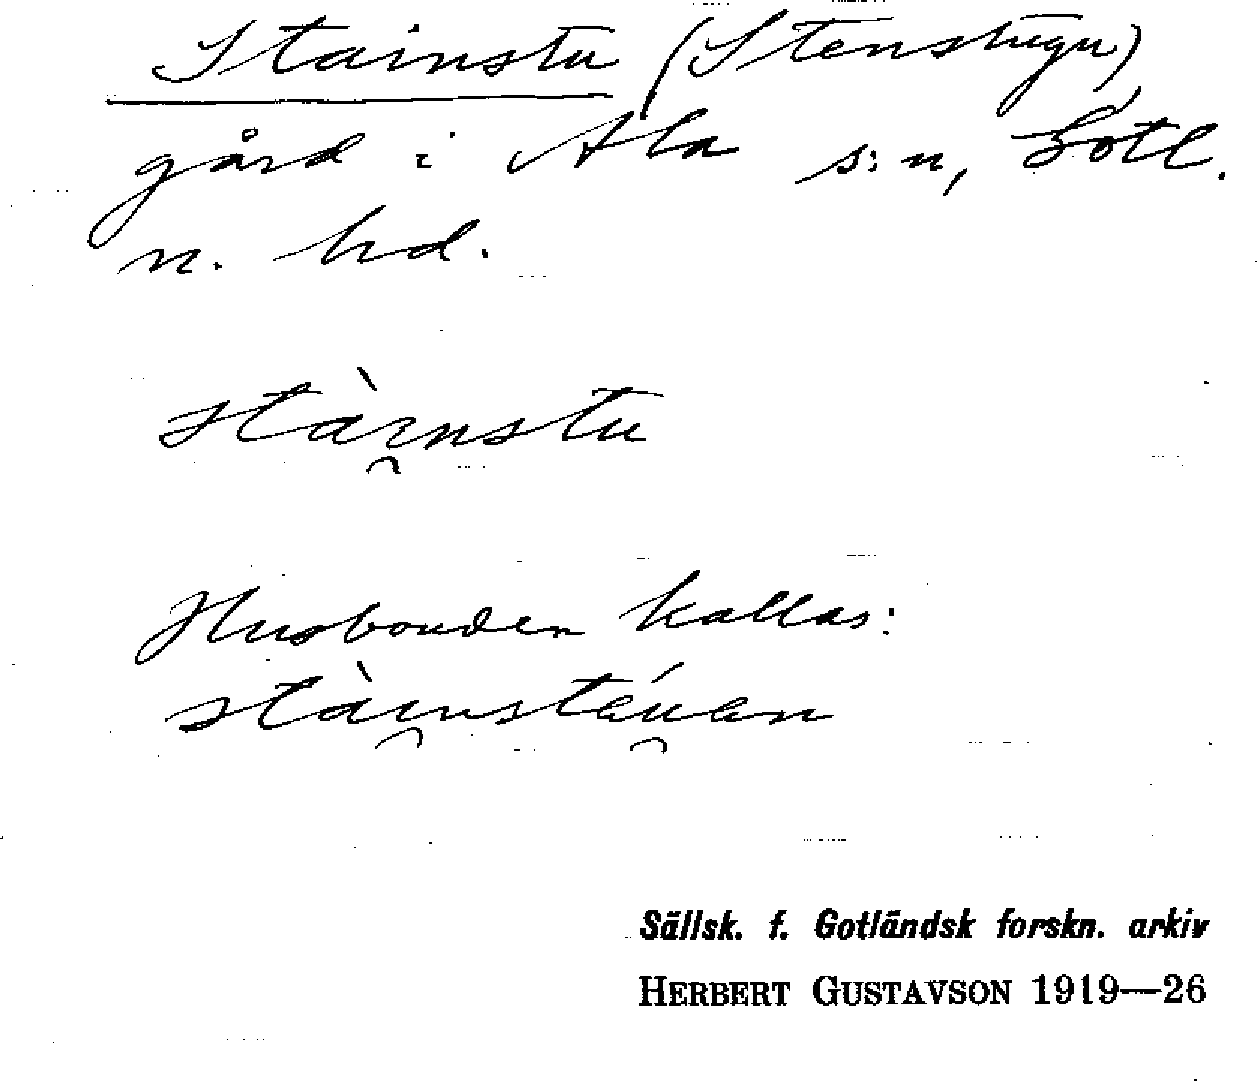 Stainstu (Stenstugu)
gård i Ala s:n, Gotl.
n. hd.
stài̯nstu
Husbonden kallas:
stài̯nstéu̯en
Sällsk. f. Gotländsk forskn. arkiv
HERBERT GUSTAVSON 1919—26